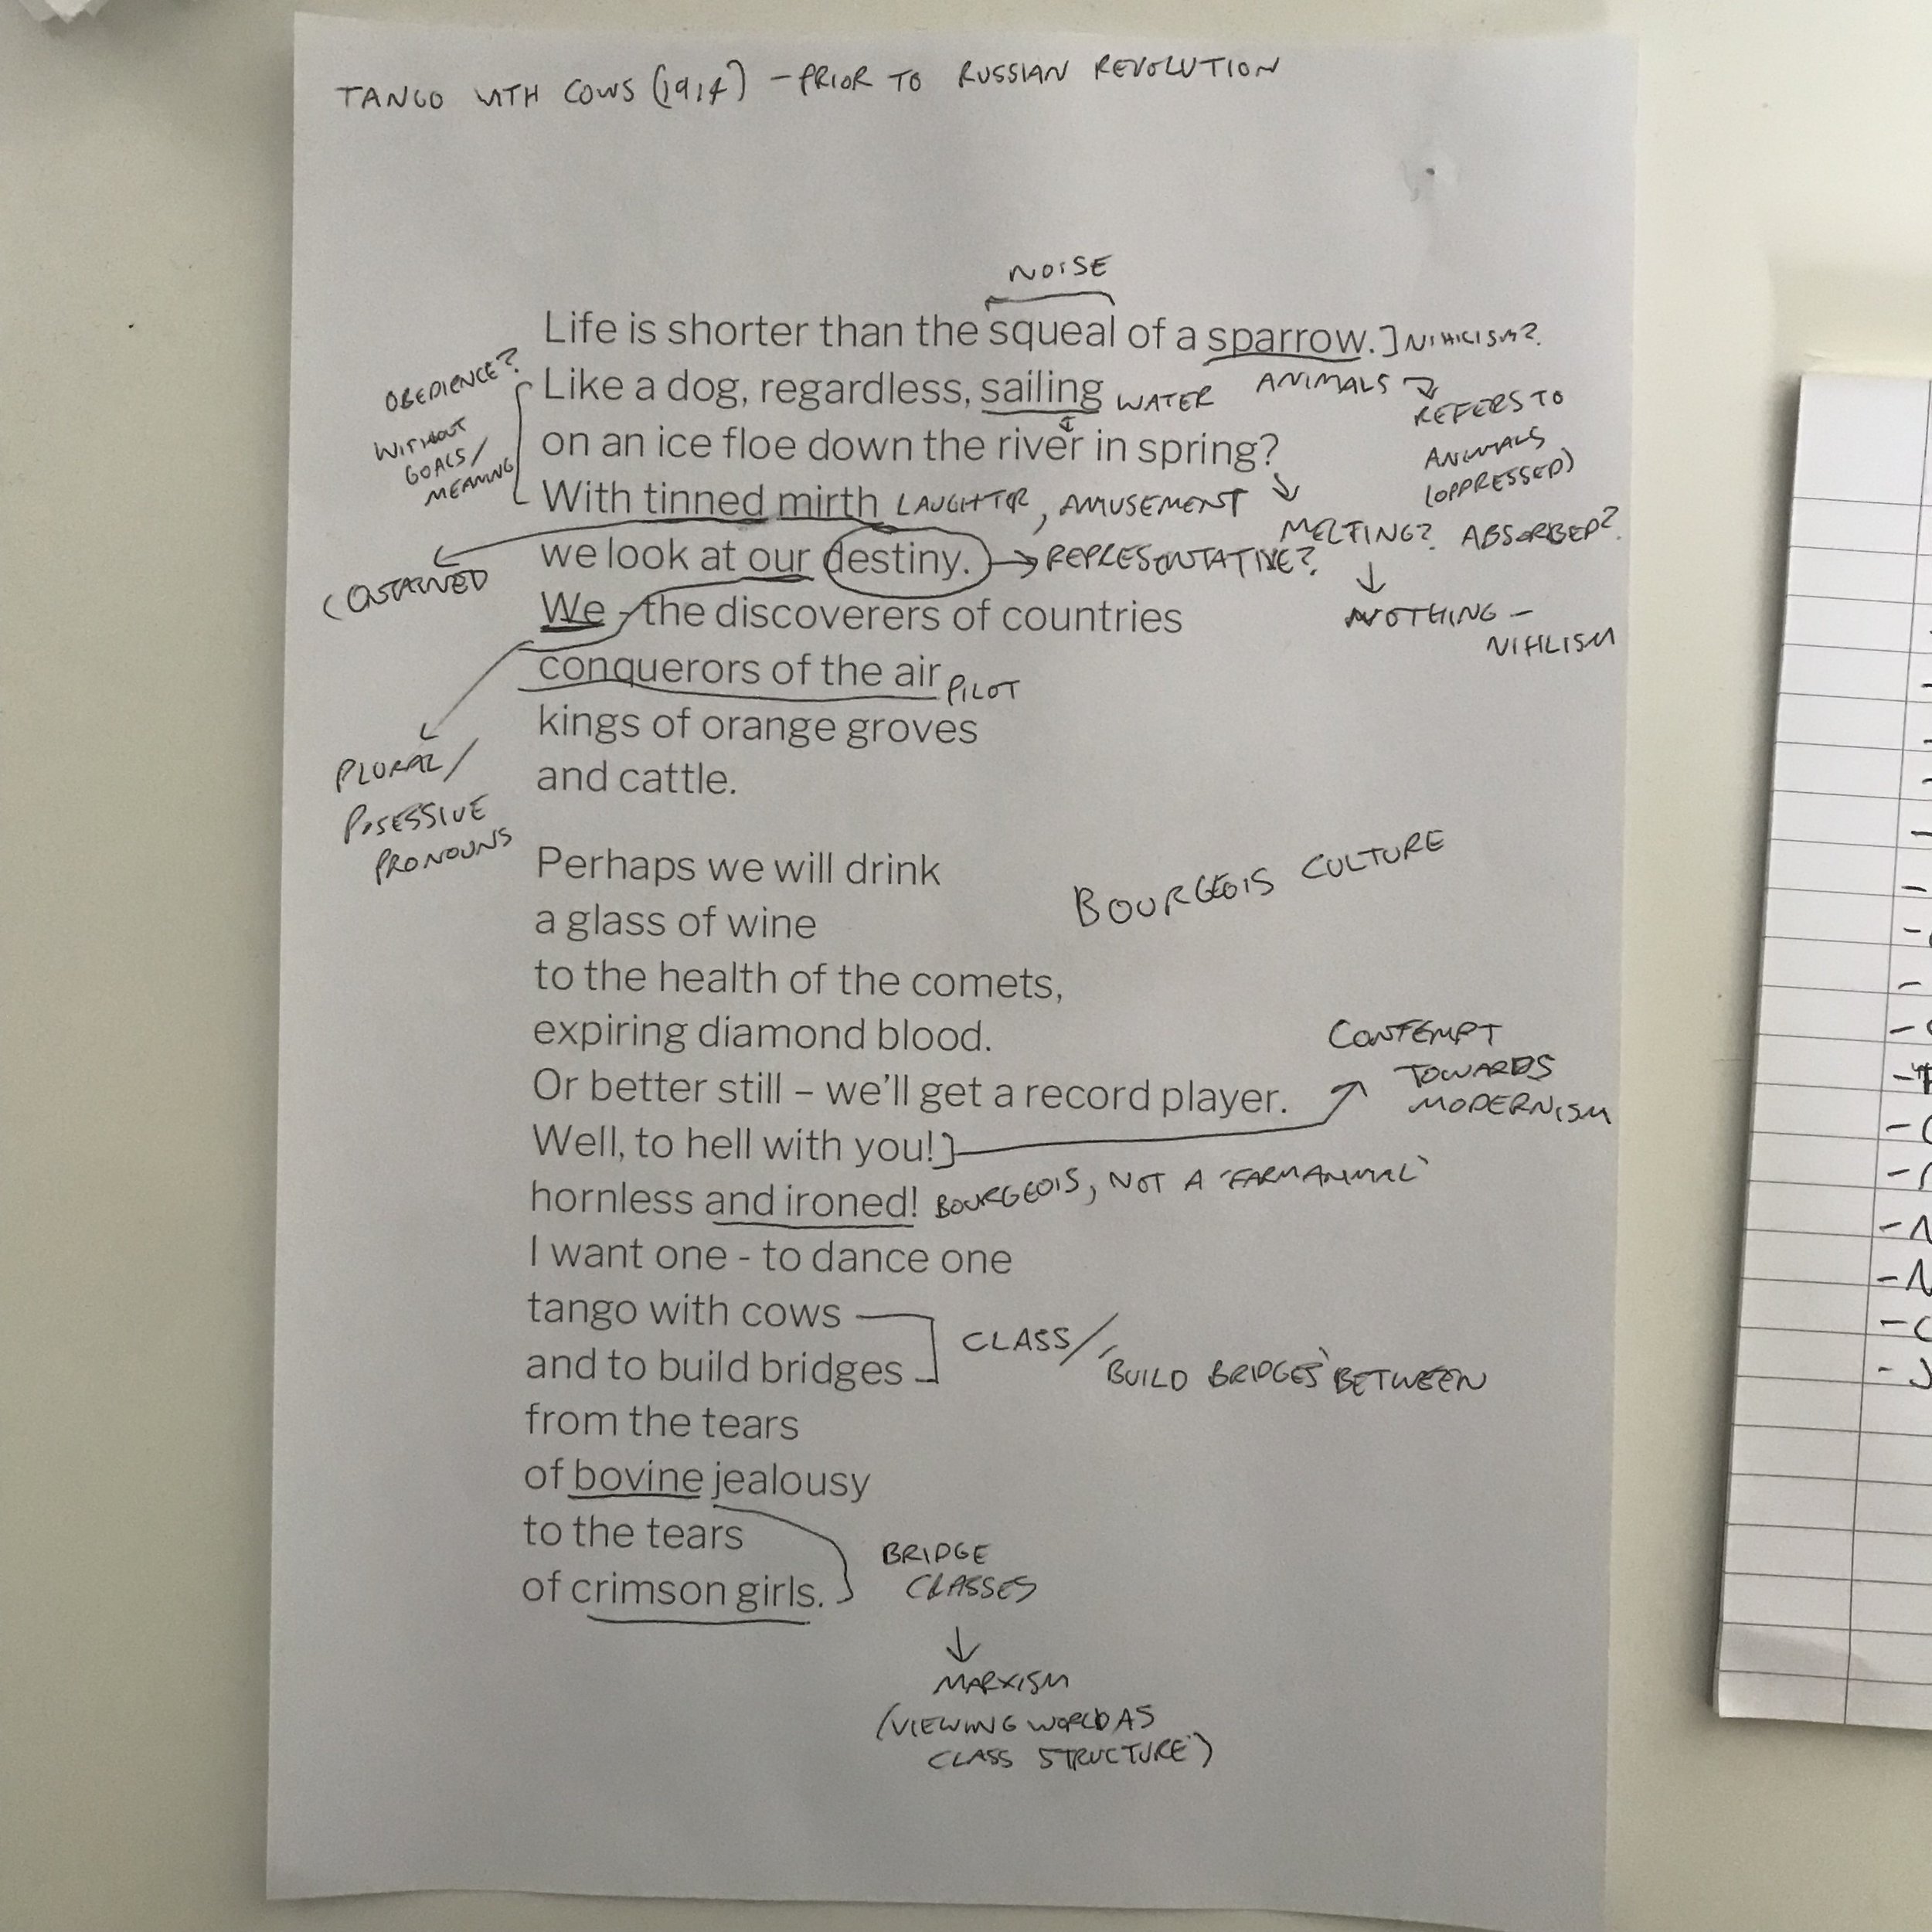 TANGO WITH COWS (1914) - PRIOR TO RUSSIAN REVOLUTION
NOISE
Life is shorter than the squeal of a sparrow.] NIHILISM?
OBEDIENCE?
Like a dog, regardless, sailing WATER ANIMALS
REFERS TO
ANIMALS
(OPPRESSED)
WITHOUT
GOALS/
MEANING
on an ice floe down the river in spring?
With tinned mirth LAUGHTER, AMUSEMENT
MELTING? ABSORBED?
we look at our destiny. REPRESENTATIVE?
CONTAINED
NOTHING -
NIHILISM
We - the discoverers of countries
conquerors of the air PILOT
kings of orange groves
and cattle.
PLURAL/
POSESSIVE
PRONOUNS
Perhaps we will drink
BOURGEOIS CULTURE
a glass of wine
to the health of the comets,
expiring diamond blood.
CONTEMPT
TOWARDS
MODERNISM
Or better still – we'll get a record player.
Well, to hell with you!]
hornless and ironed! BOURGEOIS, NOT A 'FARM ANIMAL'
I want one - to dance one
tango with cows
CLASS/
and to build bridges
'BUILD BRIDGES' BETWEEN
from the tears
of bovine jealousy
to the tears
of crimson girls.
BRIDGE
CLASSES
MARXISM
(VIEWING WORLD AS
CLASS STRUCTURE)